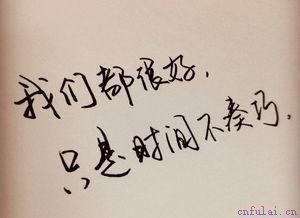 我们都很好，
只是时间不凑巧．
cnfulai.cn